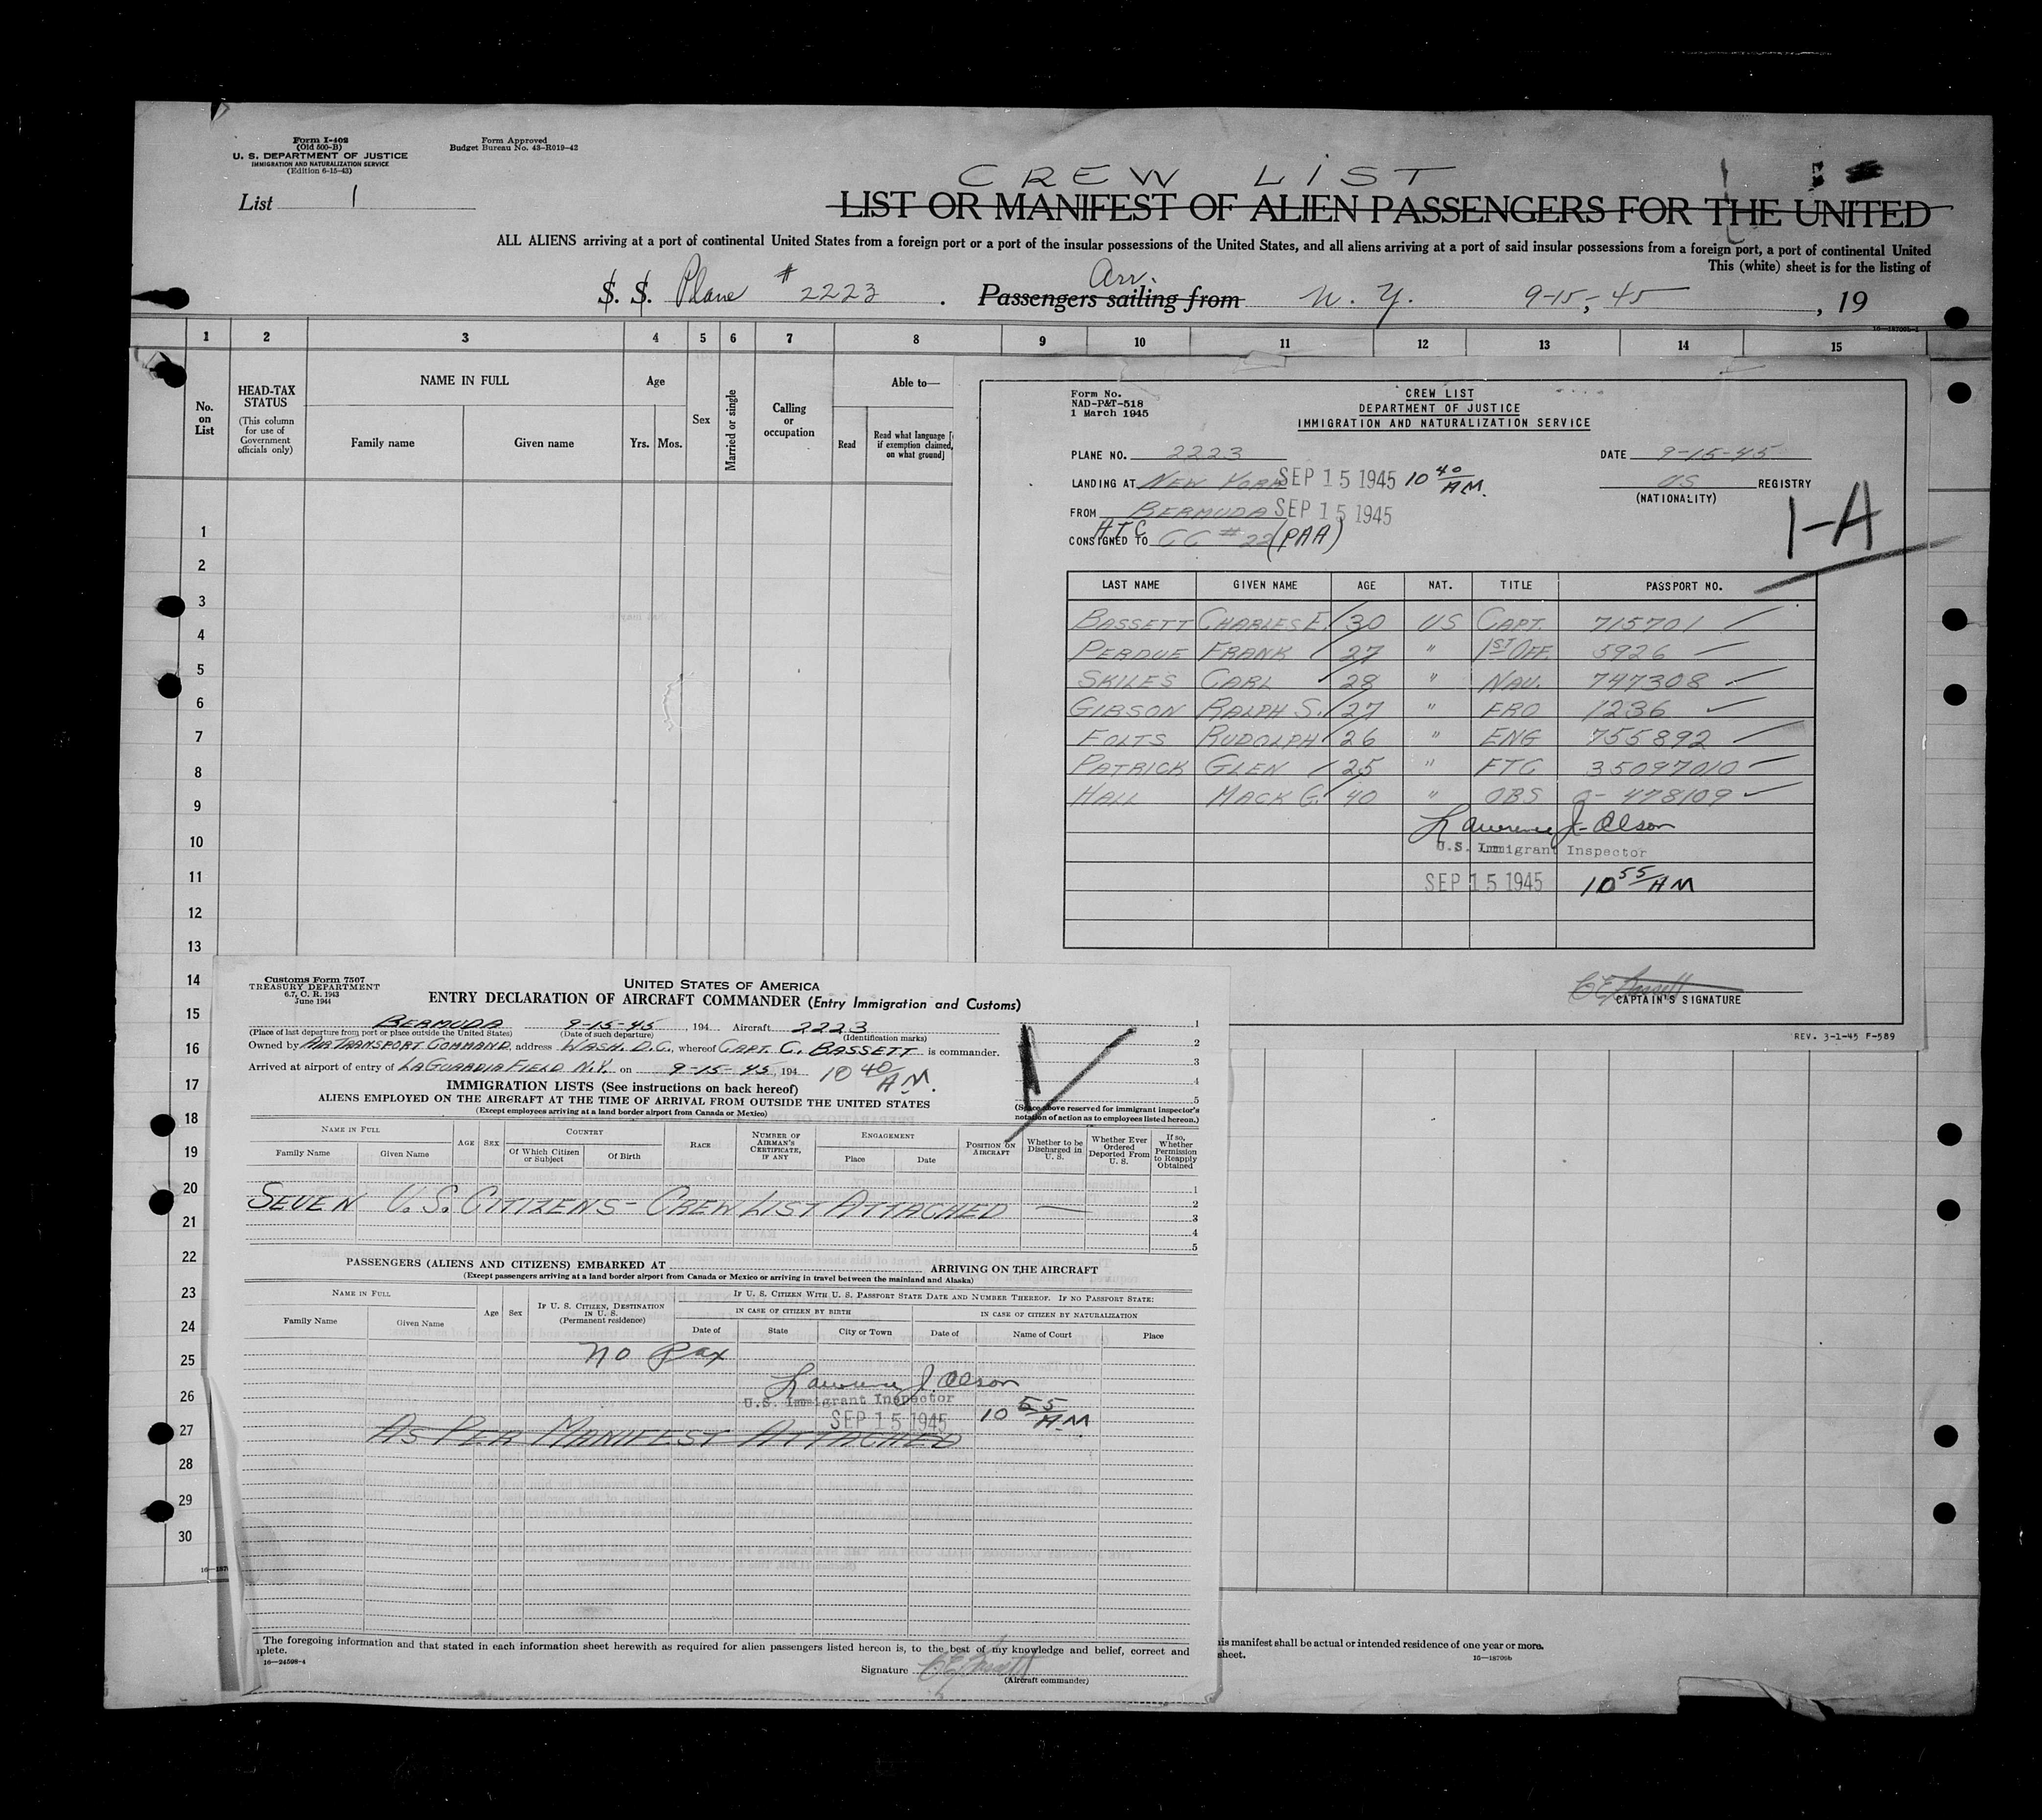 Form I-402
(Old 500-B)
U. S. DEPARTMENT OF JUSTICE
IMMIGRATION AND NATURALIZATION SERVICE
(Edition 6-15-43)
Form Approved
Budget Bureau No. 43-R019-42
List 1
CREW LIST
LIST OR MANIFEST OF ALIEN PASSENGERS FOR THE UNITED
ALL ALIENS arriving at a port of continental United States from a foreign port or a port of the insular possessions of the United States, and all aliens arriving at a port of said insular possessions from a foreign port, a port of continental United
This (white) sheet is for the listing of
Arr.
S. S. Plane # 2223 . Passengers sailing from N. Y. 9-15-45 , 19
1 2 3 4 5 6 7 8 9 10 11 12 13 14 15
No. on List
HEAD-TAX STATUS
(This column for use of Government officials only)
NAME IN FULL
Family name Given name
Age
Yrs. Mos.
Sex
Married or single
Calling or occupation
Able to—
Read
Read what language [
if exemption claimed,
on what ground]
1
2
3
4
5
6
7
8
9
10
11
12
13
14
15
16
17
18
19
20
21
22
23
24
25
26
27
28
29
30
Form No.
NAD-P&T-518
1 March 1945
CREW LIST
DEPARTMENT OF JUSTICE
IMMIGRATION AND NATURALIZATION SERVICE
PLANE NO. 2223 DATE 9-15-45
LANDING AT NEW YORK SEP 15 1945 10 40 AM. US REGISTRY
(NATIONALITY)
FROM BERMUDA SEP 15 1945
CONSIGNED TO CC # 22 (PAA)
1-A
LAST NAME GIVEN NAME AGE NAT. TITLE PASSPORT NO.
BASSETT CHARLES E. 30 US CAPT. 715701
PERDUE FRANK 27 " 1ST OFF. 5926
SKILES CARL 28 " NAV. 747308
GIBSON RALPH S. 27 " FRO 1236
FOLTS RUDOLPH 26 " ENG 755892
PATRICK GLEN 25 " FTC 35097010
HALL MACK G. 40 " OBS O- 478109
Lawrence J. Olson
U.S. Immigrant Inspector
SEP 15 1945 10 55 AM
C E Bassett
CAPTAIN'S SIGNATURE
REV. 3-1-45 F-589
Customs Form 7507
TREASURY DEPARTMENT
6.7, C. R. 1943
June 1944
UNITED STATES OF AMERICA
ENTRY DECLARATION OF AIRCRAFT COMMANDER (Entry Immigration and Customs)
BERMUDA 9-15-45 , 194 Aircraft 2223
(Place of last departure from port or place outside the United States) (Date of such departure) (Identification marks)
Owned by AIR TRANSPORT COMMAND, address WASH. D.C., whereof CAPT. C. BASSETT is commander.
Arrived at airport of entry of LAGUARDIA FIELD N.Y. on 9-15-45, 194 10 40 AM.
IMMIGRATION LISTS (See instructions on back hereof)
ALIENS EMPLOYED ON THE AIRCRAFT AT THE TIME OF ARRIVAL FROM OUTSIDE THE UNITED STATES
(Except employees arriving at a land border airport from Canada or Mexico)
1
2
3
4
5
(Space above reserved for immigrant inspector's
notation of action as to employees listed hereon.)
NAME IN FULL
Family Name Given Name
AGE SEX
COUNTRY
Of Which Citizen or Subject Of Birth
RACE
NUMBER OF AIRMAN'S CERTIFICATE, IF ANY
ENGAGEMENT
Place Date
POSITION ON AIRCRAFT
Whether to be Discharged in U. S.
Whether Ever Ordered Deported From U. S.
If so, Whether Permission to Reapply Obtained
1
2
3
4
5
SEVEN U.S. CITIZENS - CREW LIST ATTACHED
PASSENGERS (ALIENS AND CITIZENS) EMBARKED AT ARRIVING ON THE AIRCRAFT
(Except passengers arriving at a land border airport from Canada or Mexico or arriving in travel between the mainland and Alaska)
NAME IN FULL
Family Name Given Name
Age Sex
IF U. S. CITIZEN, DESTINATION IN U. S.
(Permanent residence)
IF U. S. CITIZEN WITH U. S. PASSPORT STATE DATE AND NUMBER THEREOF. IF NO PASSPORT STATE:
IN CASE OF CITIZEN BY BIRTH IN CASE OF CITIZEN BY NATURALIZATION
Date of State City or Town Date of Name of Court Place
No Pax
Lawrence J. Olson
U.S. Immigrant Inspector
SEP 15 1945 10 55 AM.
AS PER MANIFEST ATTACHED
The foregoing information and that stated in each information sheet herewith as required for alien passengers listed hereon is, to the best of my knowledge and belief, correct and
plete.
16—24598-4
Signature C E Bassett
(Aircraft commander)
is manifest shall be actual or intended residence of one year or more.
sheet.
16—18706b